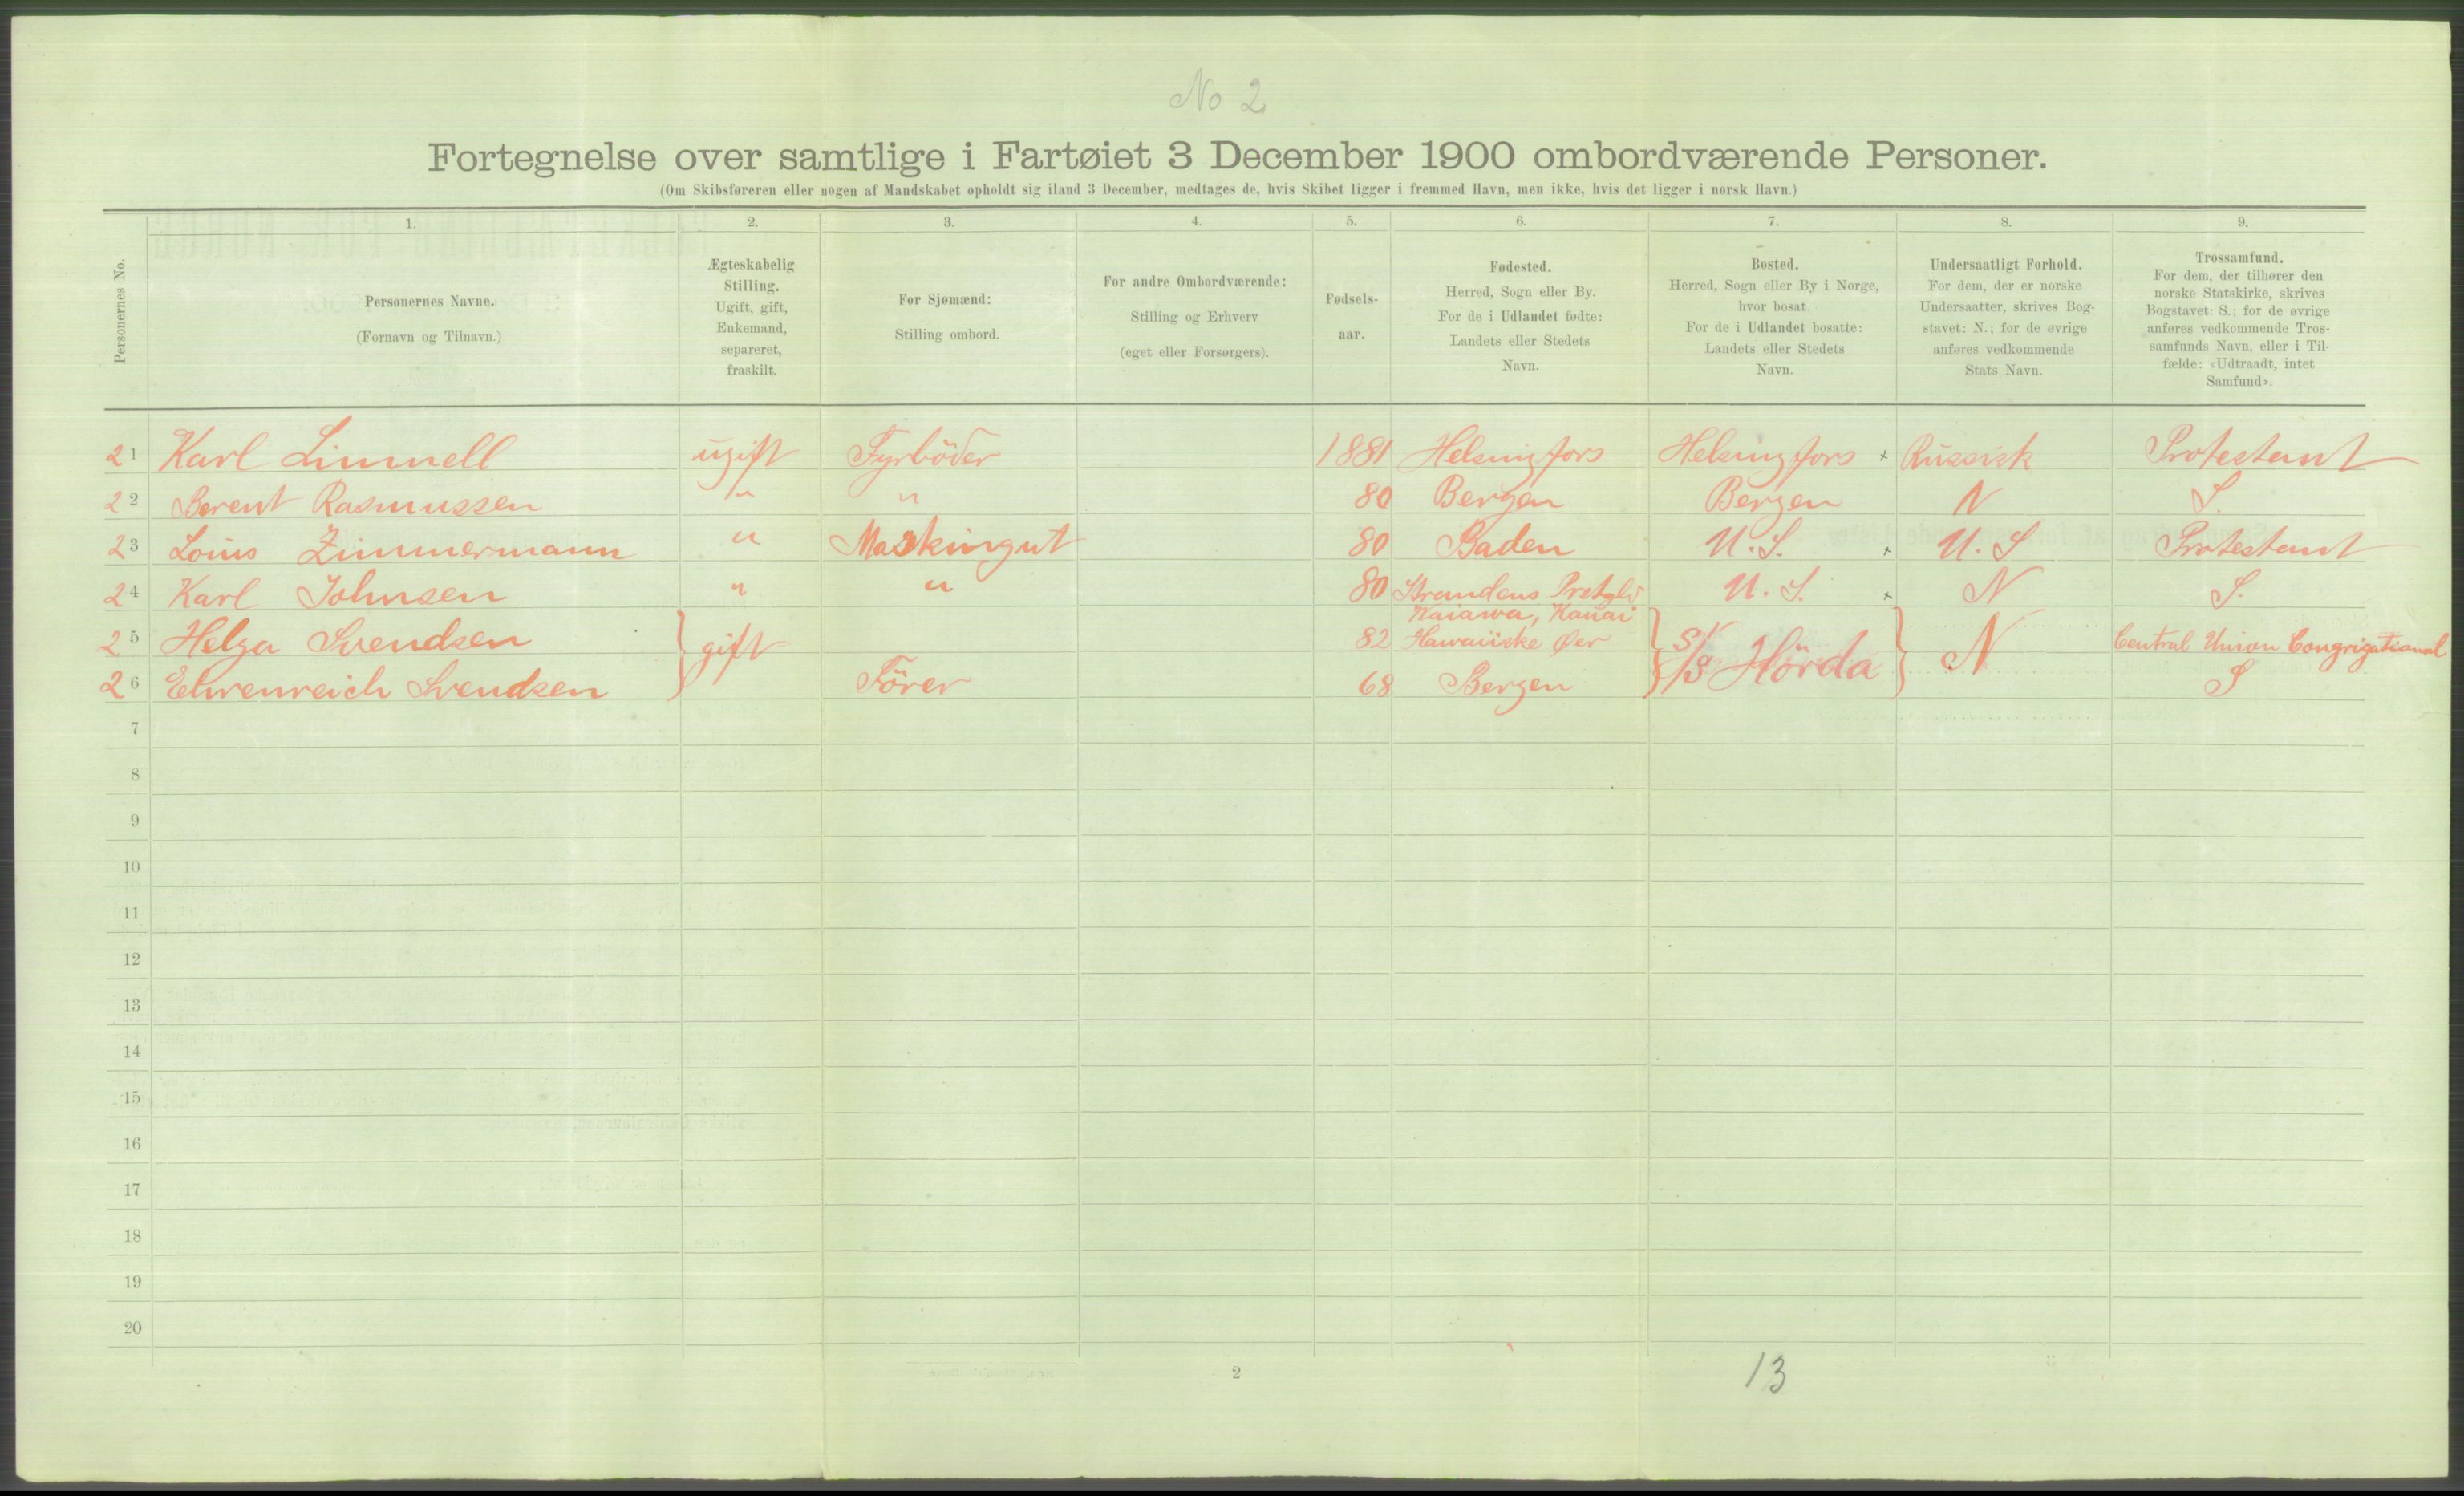 No 2
Fortegnelse over samtlige i Fartøiet 3 December 1900 ombordværende Personer.
(Om Skibsføreren eller nogen af Mandskabet opholdt sig iland 3 December, medtages de, hvis Skibet ligger i fremmed Havn, men ikke, hvis det ligger i norsk Havn.)
Personernes No.
1.
Personernes Navne.
(Fornavn og Tilnavn.)
2.
Ægteskabelig
Stilling.
Ugift, gift,
Enkemand,
separeret,
fraskilt.
3.
For Sjømænd:
Stilling ombord.
4.
For andre Ombordværende:
Stilling og Erhverv
(eget eller Forsørgers).
5.
Fødsels-
aar.
6.
Fødested.
Herred, Sogn eller By.
For de i Udlandet fødte:
Landets eller Stedets
Navn.
7.
Bosted.
Herred, Sogn eller By i Norge,
hvor bosat.
For de i Udlandet bosatte:
Landets eller Stedets
Navn.
8.
Undersaatligt Forhold.
For dem, der er norske
Undersaatter, skrives Bog-
stavet: N.; for de øvrige
anføres vedkommende
Stats Navn.
9.
Trossamfund.
For dem, der tilhører den
norske Statskirke, skrives
Bogstavet: S.; for de øvrige
anføres vedkommende Tros-
samfunds Navn, eller i Til-
fælde: «Udtraadt, intet
Samfund».
21 Karl Limnell ugift Fyrböder 1881 Helsingfors Helsingfors + Russisk Protestant
22 Berent Rasmussen " " 80 Bergen Bergen N S.
23 Louis Zimmermann " Maskingut 80 Baden U.S. + U.S Protestant
24 Karl Johnsen " " 80 Strandens Prstgld U.S. + N S.
Waiawa, Kauai
25 Helga Svendsen } gift 82 Hawaiiske Øer } S/S Hörda } N Central Union Congrigational
26 Ehrenreich Svendsen Förer 68 Bergen S
7
8
9
10
11
12
13
14
15
16
17
18
19
20
2
13